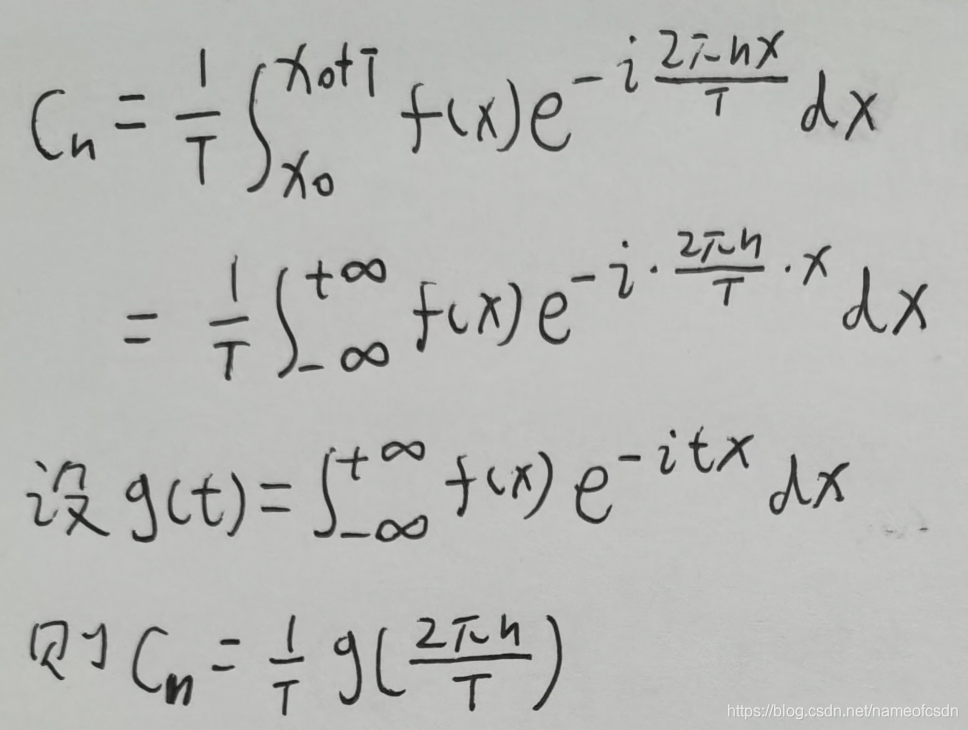 Cₙ = 1/T ∫_{x₀}^{x₀+T} f(x)e^{-i 2πnx/T} dx
= 1/T ∫_{-∞}^{+∞} f(x)e^{-i·2πn/T·x} dx
设 g(t) = ∫_{-∞}^{+∞} f(x) e^{-itx} dx
则 Cₙ = 1/T g(2πn/T)
https://blog.csdn.net/nameofcsdn